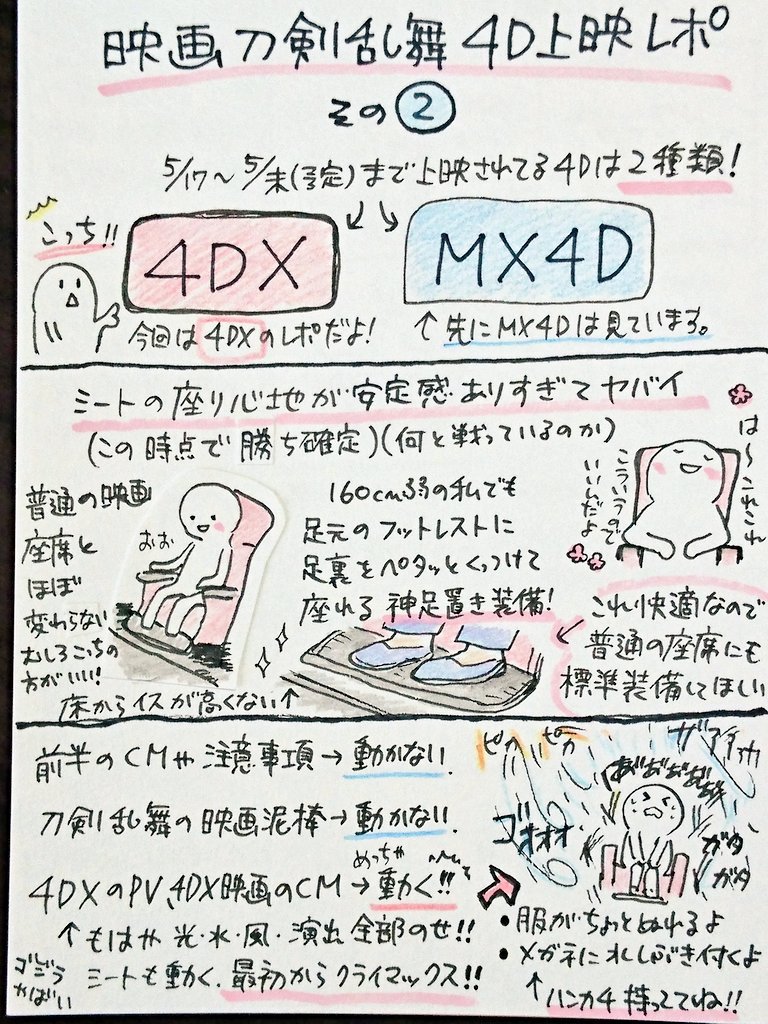 映画刀剣乱舞4D上映レポ
その②
5/17～5/末(予定)まで上映されてる4Dは2種類!
こっち!!
4DX
MX4D
今回は4DXのレポだよ!
↑先にMX4Dは見ています。
シートの座り心地が安定感ありすぎてヤバイ
(この時点で勝ち確定)(何と戦っているのか)
普通の映画
座席と
ほぼ
変わらない
むしろこっちの
方がいい!
おお
床からイスが高くない↑
160cm弱の私でも
足元のフットレストに
足裏をペタッとくっつけて
座れる神足置き装備!
は～これこれ
こういうので
いいんだよ
これ快適なので
普通の座席にも
標準装備してほしい
前半のCMや注意事項→動かない
刀剣乱舞の映画泥棒→動かない
4DXのPV、4DX映画のCM→めっちゃ動く!!
↑もはや光・水・風・演出全部のせ!!
シートも動く、最初からクライマックス!!
ゴジラ
やばい
ピカ ピカ
ゴオオオ
ガタ
ガタ
・服がちょっとぬれるよ
・メガネに水しぶき付くよ
↑ハンカチ持っててね!!